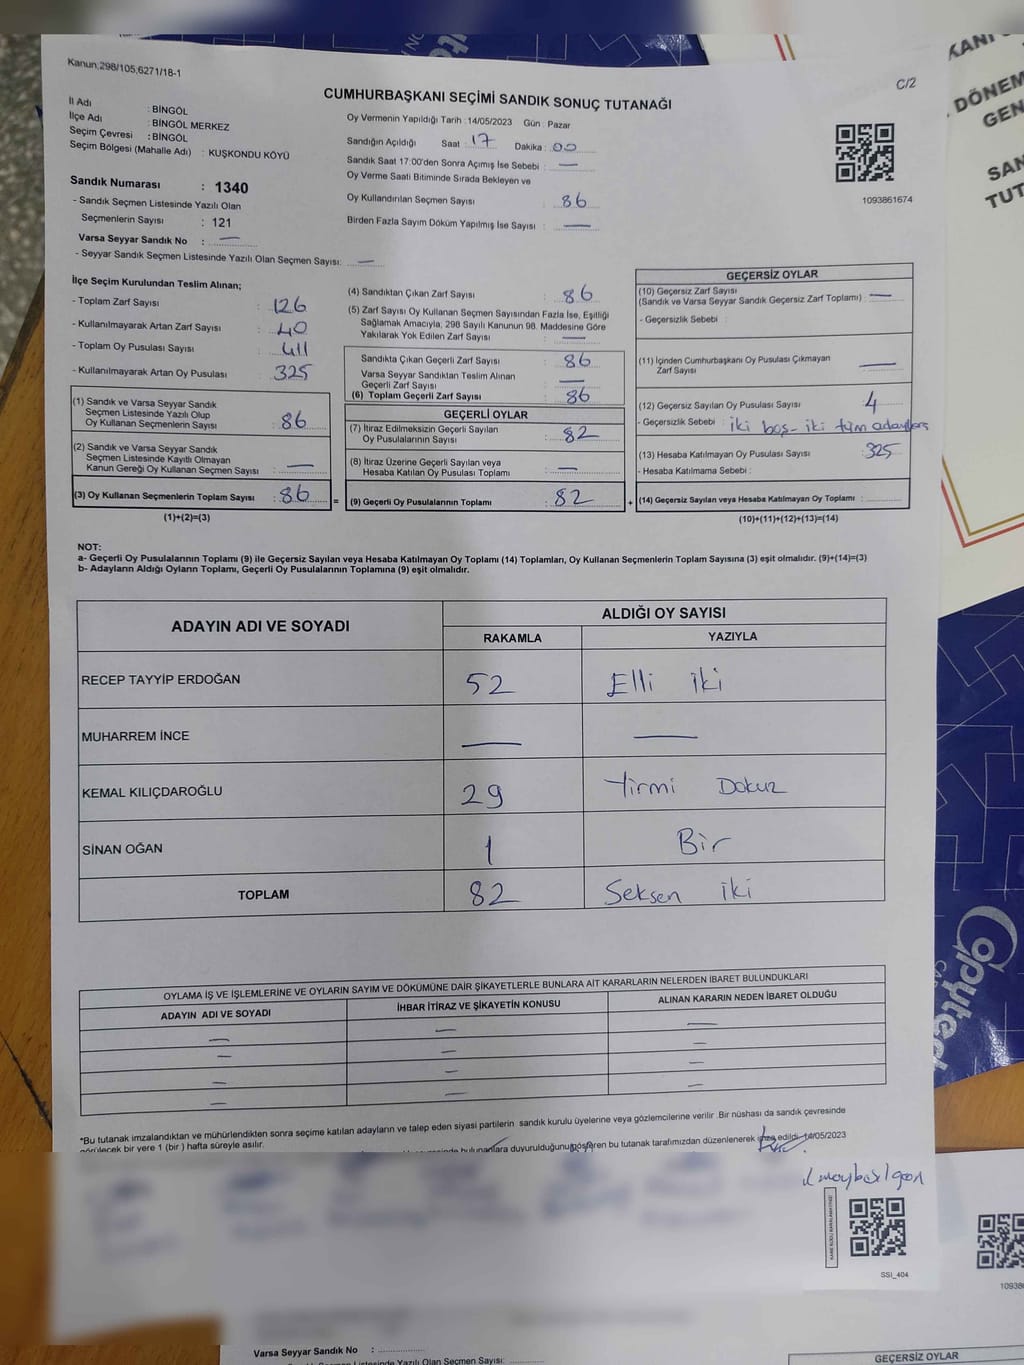 Kanun,298/105,6271/18-1
C/2
CUMHURBAŞKANI SEÇİMİ SANDIK SONUÇ TUTANAĞI
İl Adı : BİNGÖL
İlçe Adı : BİNGÖL MERKEZ
Seçim Çevresi : BİNGÖL
Seçim Bölgesi (Mahalle Adı) : KUŞKONDU KÖYÜ
Sandık Numarası : 1340
- Sandık Seçmen Listesinde Yazılı Olan
Seçmenlerin Sayısı : 121
Varsa Seyyar Sandık No : —
- Seyyar Sandık Seçmen Listesinde Yazılı Olan Seçmen Sayısı: —
Oy Vermenin Yapıldığı Tarih :14/05/2023 Gün : Pazar
Sandığın Açıldığı Saat : 17 Dakika : 00
Sandık Saat 17:00'den Sonra Açımış İse Sebebi : —
Oy Verme Saati Bitiminde Sırada Bekleyen ve
Oy Kullandırılan Seçmen Sayısı : 86
Birden Fazla Sayım Döküm Yapılmış İse Sayısı : —
1093861674
İlçe Seçim Kurulundan Teslim Alınan;
- Toplam Zarf Sayısı : 126
- Kullanılmayarak Artan Zarf Sayısı : 40
- Toplam Oy Pusulası Sayısı : 411
- Kullanılmayarak Artan Oy Pusulası : 325
(1) Sandık ve Varsa Seyyar Sandık
Seçmen Listesinde Yazılı Olup
Oy Kullanan Seçmenlerin Sayısı : 86
(2) Sandık ve Varsa Seyyar Sandık
Seçmen Listesinde Kayıtlı Olmayan
Kanun Gereği Oy Kullanan Seçmen Sayısı : —
(3) Oy Kullanan Seçmenlerin Toplam Sayısı : 86 =
(1)+(2)=(3)
(4) Sandıktan Çıkan Zarf Sayısı : 86
(5) Zarf Sayısı Oy Kullanan Seçmen Sayısından Fazla İse, Eşitliği
Sağlamak Amacıyla, 298 Sayılı Kanunun 98. Maddesine Göre
Yakılarak Yok Edilen Zarf Sayısı : —
Sandıkta Çıkan Geçerli Zarf Sayısı : 86
Varsa Seyyar Sandıktan Teslim Alınan
Geçerli Zarf Sayısı : —
(6) Toplam Geçerli Zarf Sayısı : 86
GEÇERLİ OYLAR
(7) İtiraz Edilmeksizin Geçerli Sayılan
Oy Pusulalarının Sayısı : 82
(8) İtiraz Üzerine Geçerli Sayılan veya
Hesaba Katılan Oy Pusulası Toplamı : —
(9) Geçerli Oy Pusulalarının Toplamı : 82 +
GEÇERSİZ OYLAR
(10) Geçersiz Zarf Sayısı
(Sandık ve Varsa Seyyar Sandık Geçersiz Zarf Toplamı) : —
- Geçersizlik Sebebi :
(11) İçinden Cumhurbaşkanı Oy Pusulası Çıkmayan
Zarf Sayısı : —
(12) Geçersiz Sayılan Oy Pusulası Sayısı : 4
- Geçersizlik Sebebi : iki boş - iki tüm adaylara
(13) Hesaba Katılmayan Oy Pusulası Sayısı : 325
- Hesaba Katılmama Sebebi :
(14) Geçersiz Sayılan veya Hesaba Katılmayan Oy Toplamı :
(10)+(11)+(12)+(13)=(14)
NOT:
a- Geçerli Oy Pusulalarının Toplamı (9) ile Geçersiz Sayılan veya Hesaba Katılmayan Oy Toplamı (14) Toplamları, Oy Kullanan Seçmenlerin Toplam Sayısına (3) eşit olmalıdır. (9)+(14)=(3)
b- Adayların Aldığı Oyların Toplamı, Geçerli Oy Pusulalarının Toplamına (9) eşit olmalıdır.
ADAYIN ADI VE SOYADI ALDIĞI OY SAYISI
RAKAMLA YAZIYLA
RECEP TAYYİP ERDOĞAN 52 Elli iki
MUHARREM İNCE — —
KEMAL KILIÇDAROĞLU 29 Yirmi Dokuz
SİNAN OĞAN 1 Bir
TOPLAM 82 Seksen iki
OYLAMA İŞ VE İŞLEMLERİNE VE OYLARIN SAYIM VE DÖKÜMÜNE DAİR ŞİKAYETLERLE BUNLARA AİT KARARLARIN NELERDEN İBARET BULUNDUKLARI
ADAYIN ADI VE SOYADI İHBAR İTİRAZ VE ŞİKAYETİN KONUSU ALINAN KARARIN NEDEN İBARET OLDUĞU
— — —
— — —
— — —
— — —
*Bu tutanak imzalandıktan ve mühürlendikten sonra seçime katılan adayların ve talep eden siyasi partilerin sandık kurulu üyelerine veya gözlemcilerine verilir .Bir nüshası da sandık çevresinde
görülecek bir yere 1 (bir ) hafta süreyle asılır.
duyurulduğunu gösteren bu tutanak tarafımızdan düzenlenerek imza edildi. 14/05/2023
SSİ_404
KANI
DÖNEM
GEN
SAN
TUT
Copytech
10938
Varsa Seyyar Sandık No :
Seçmen Listesinde Yazılı Olan Seçmen Sayısı:
GEÇERSİZ OYLAR